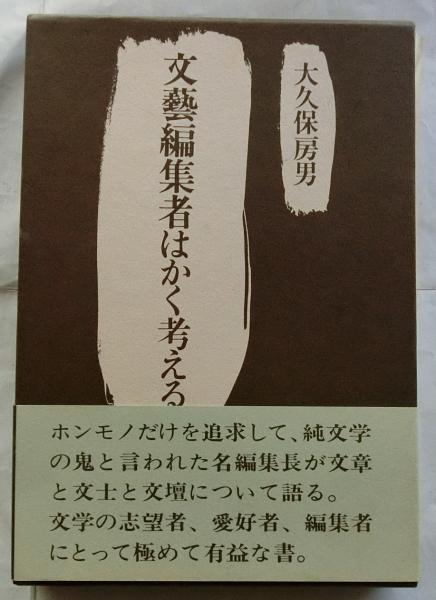 大久保房男
文藝編集者はかく考える
ホンモノだけを追求して、純文学
の鬼と言われた名編集長が文章
と文士と文壇について語る。
文学の志望者、愛好者、編集者
にとって極めて有益な書。